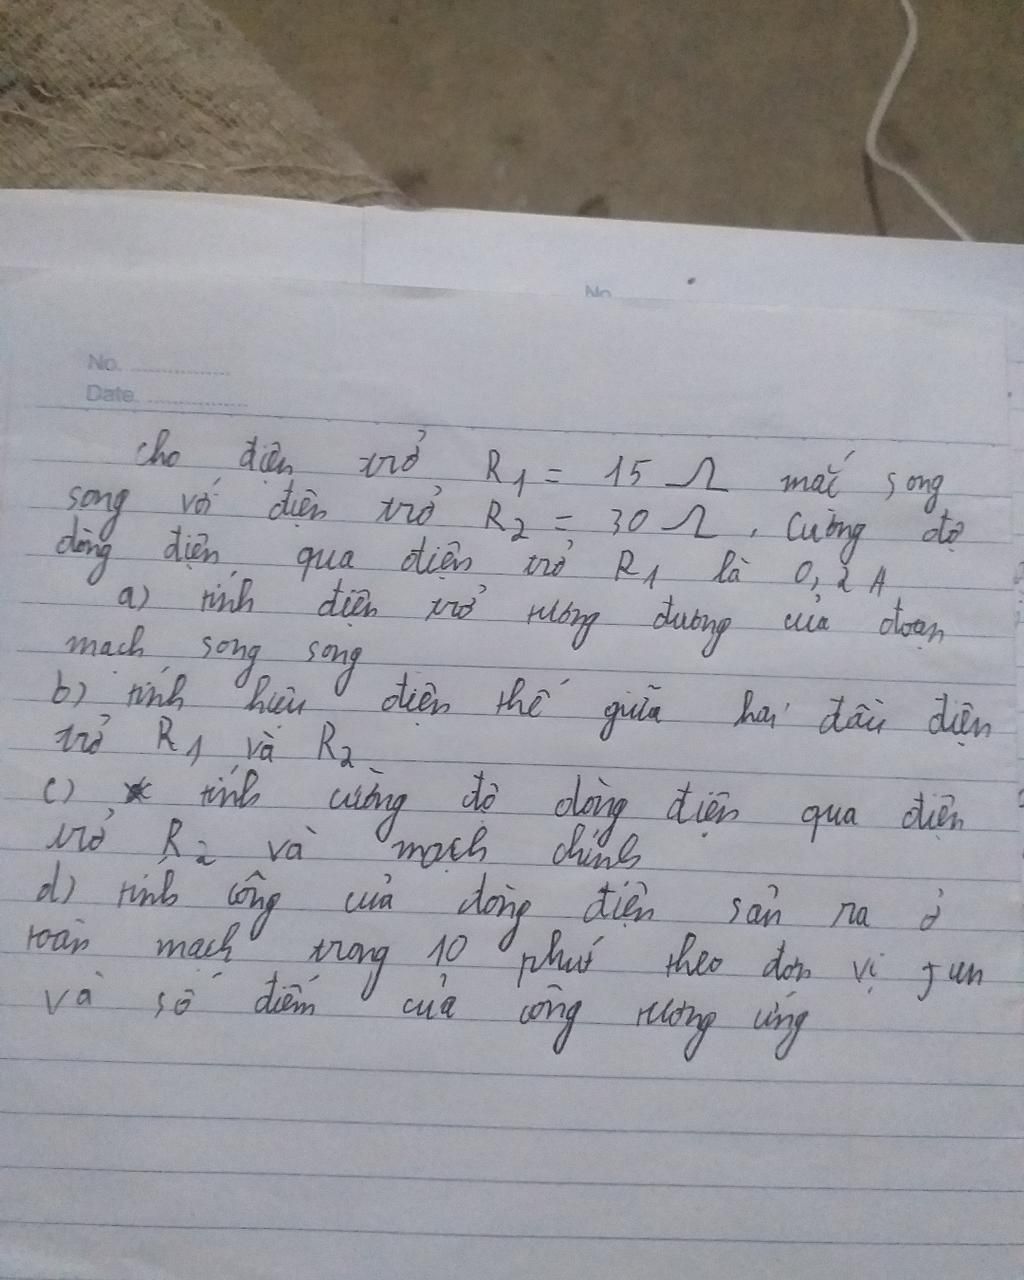 No
No.
Date
cho điện trở R1 = 15 Ω mắc song
song với điện trở R2 = 30 Ω, Cường độ
dòng điện qua điện trở R1 là 0,2 A
a) tính điện trở tương đương của đoạn
mạch song song
b) tính hiệu điện thế giữa hai đầu điện
trở R1 và R2
c) tính cường độ dòng điện qua điện
trở R2 và mạch chính
d) tính công của dòng điện sản ra ở
toàn mạch trong 10 phút theo đơn vị Jun
và số điếm của công tương ứng